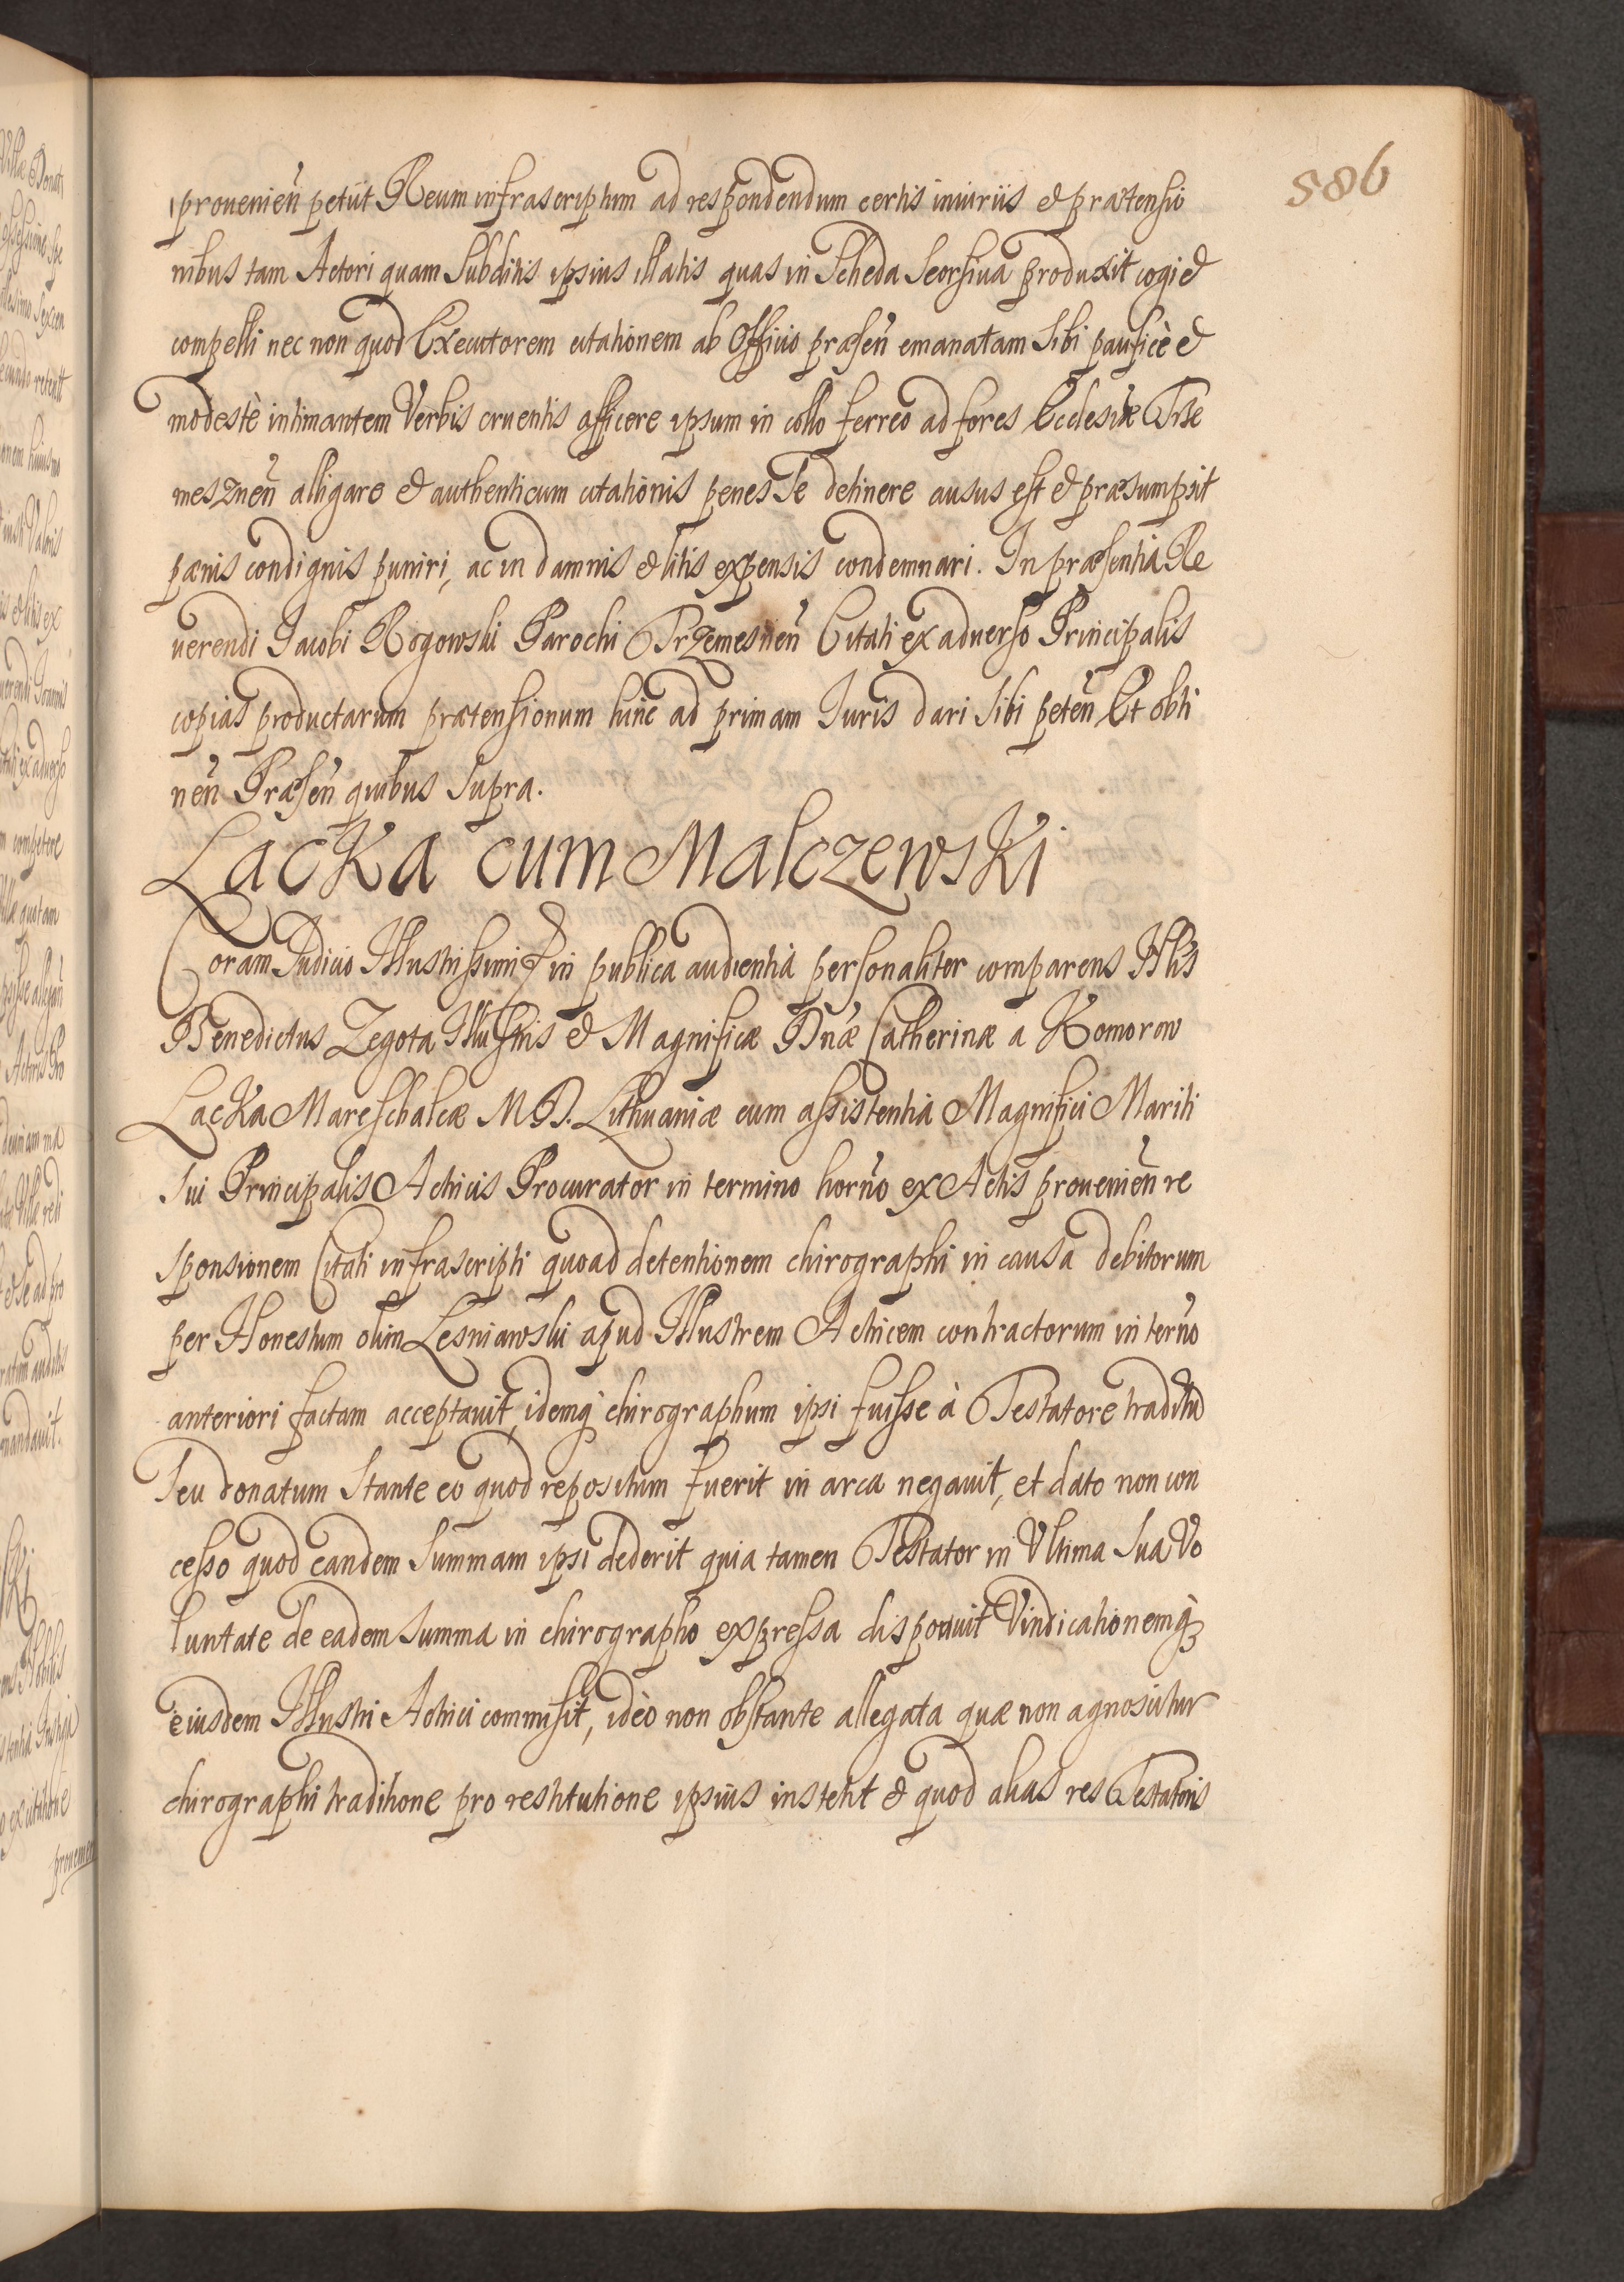 586
prouenień petiit Reum infrascriptum ad respondendum certis iniuriis et prætensio
nibus tam Actori quam Subditis ipsius illatis quas in Scheda Seorsiua produxit cogi et
compelli nec non quod Executorem citationem ab Officio præseń emanatam Sibi paufice et
modestè intimantem Verbis cruentis afficere ipsum in collo ferreo ad fores Ecclesiæ Trze
meszneń alligare et authenticum citationis penes Se detinere ausus est et præsumpsit
pænis condignis puniri, ac in damnis et litis expensis condemnari. In præsentia Re
uerendi Jacobi Rogowski Parochi Trzemesneń Citati ex aduerso Principalis
copias productarum prætensionum hinc ad primam Iuris dari Sibi peteń Et obti
neń Præseń quibus Supra.
Lacka cum Malczewski
Coram Judicio Illustrissimi in publica audientia personaliter comparens Nblis
Benedictus Zegota Illustris et Magnificæ Dnæ Catherinæ a Komorow
Lacka Mareschalcæ M. D. Lithuaniæ cum assistentia Magnifici Mariti
Sui Principalis Actricis Procurator in termino horńo ex Actis prouenień re
sponsionem Citati infrascripti quoad detentionem chirographi in causa debitorum
per Honestum olim Lesniawski apud Illustrem Actricem contractorum in terńo
anteriori factam acceptauit, idemq chirographum ipsi fuisse à Testatore traditū
Seu donatum Stante eo quod repositum fuerit in arca negauit, et dato non con
cesso quod eandem Summam ipsi dederit quia tamen Testator in Vltima Sua Vo
luntate de eadem Summa in chirographo expressa disposuit Vindicationemq́
eiusdem Illustri Actrici commisit, ideo non obstante allegata quæ non agnoscitur
chirographi traditione pro restitutione ipsius institit et quod alias res Testatoris